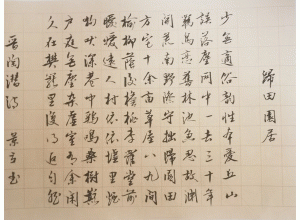 歸田園居
少無適俗韻性本愛丘山
誤落塵網中一去三十年
羈鳥戀舊林池魚思故淵
開荒南野際守拙歸園田
方宅十餘畝草屋八九間
榆柳蔭後檐桃李羅堂前
曖曖遠人村依依墟里煙
狗吠深巷中雞鳴桑樹巔
戶庭無塵雜虛室有餘閑
久在樊籠裏復得返自然
晉陶潛詩